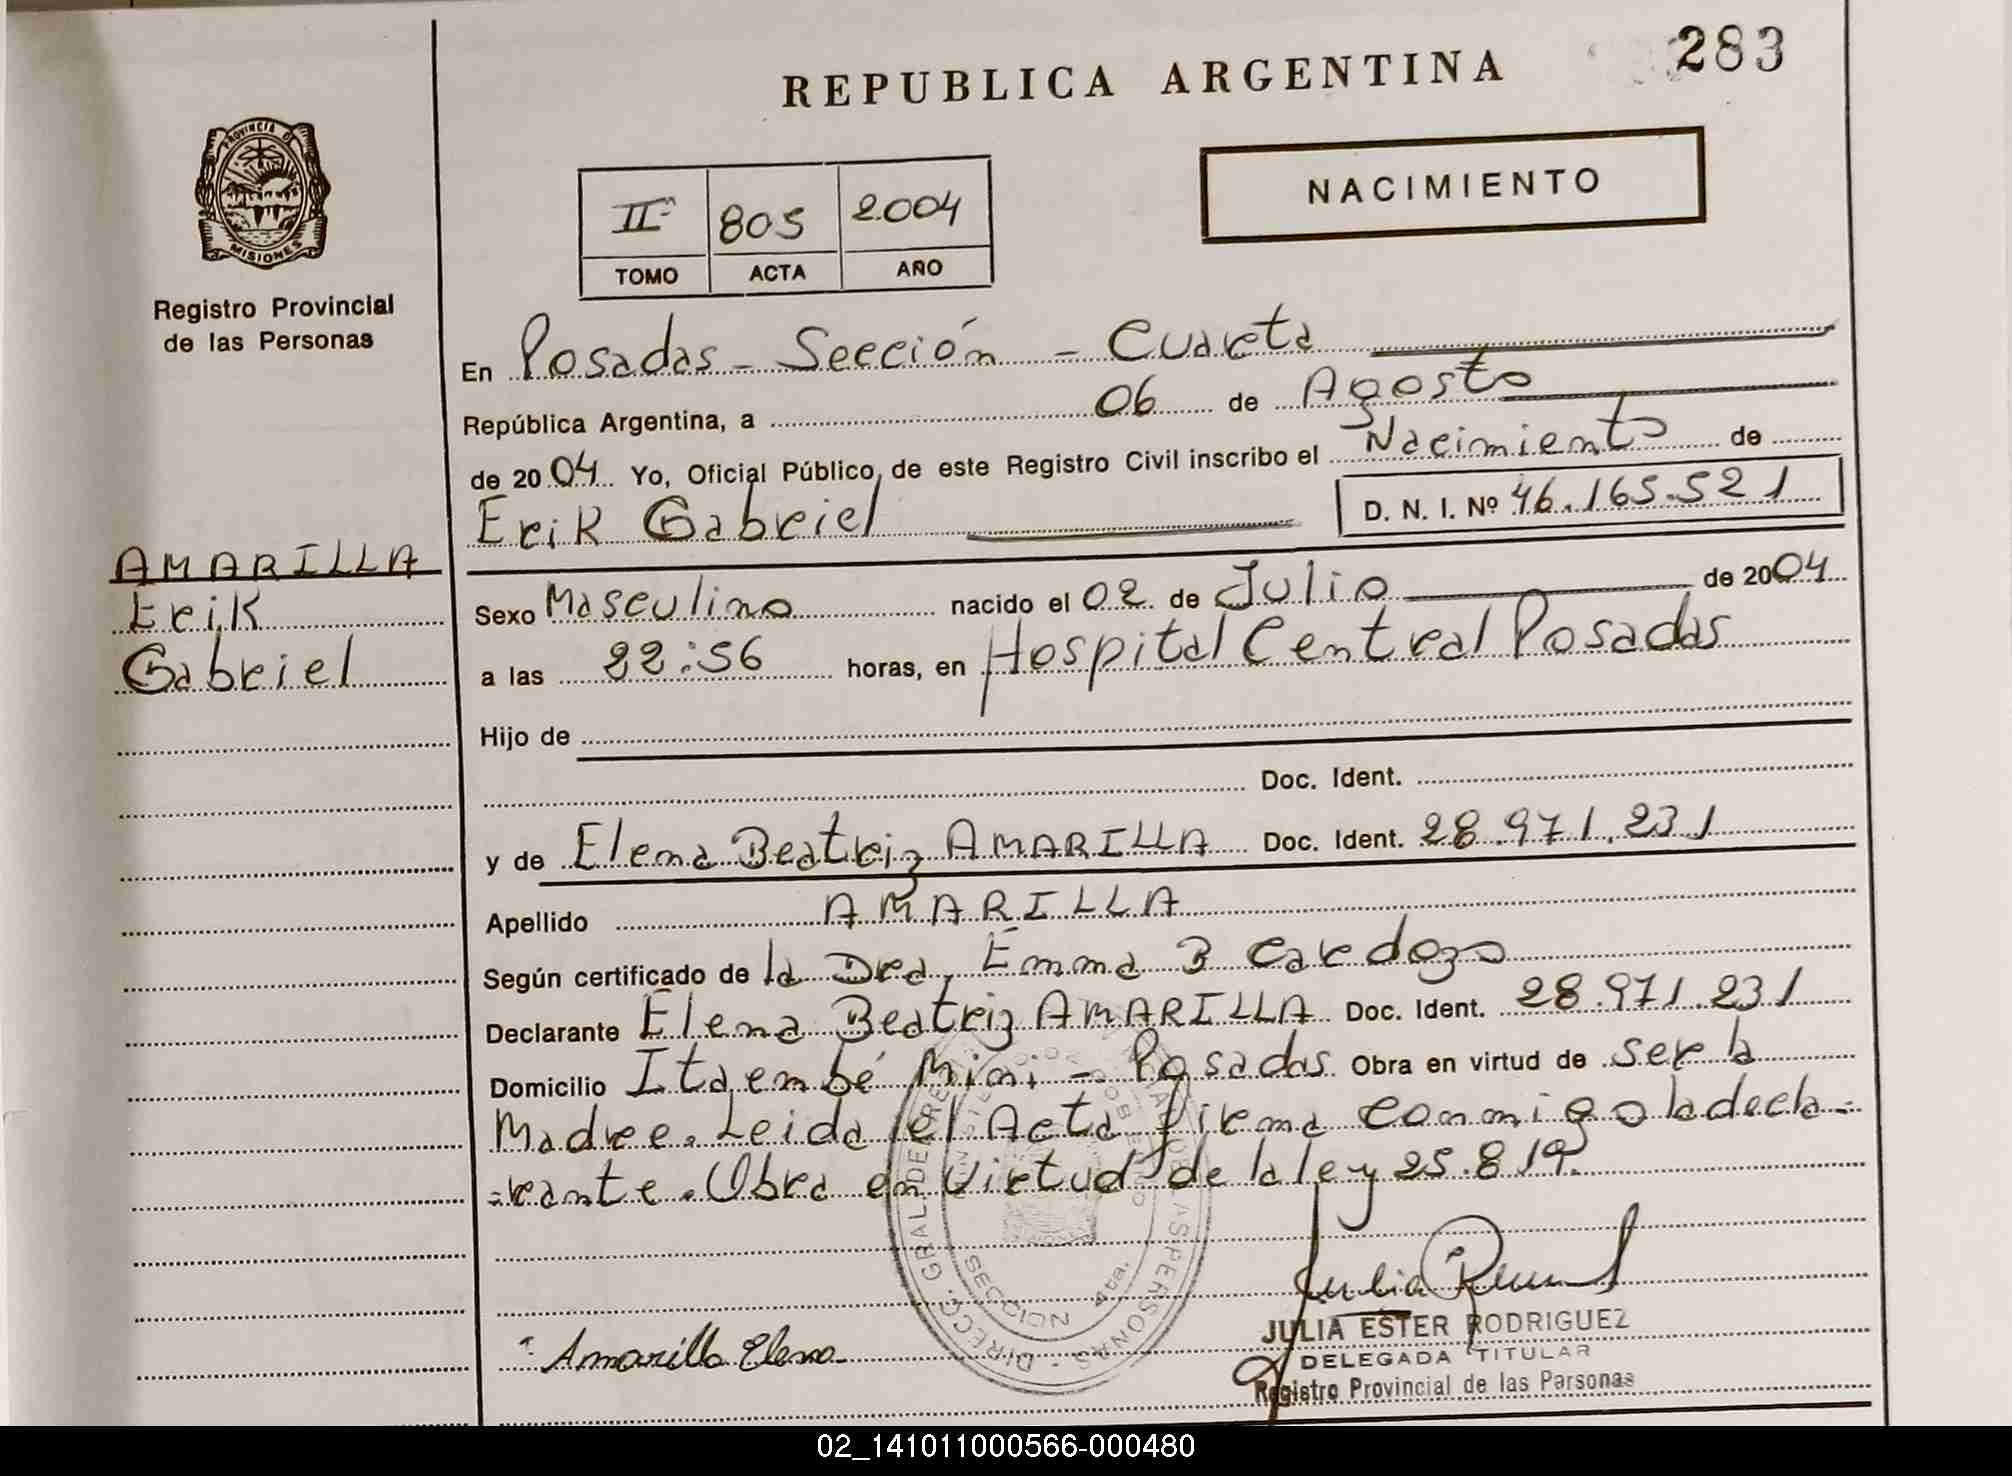 283
REPUBLICA ARGENTINA
NACIMIENTO
PROVINCIA DE MISIONES
Registro Provincial
de las Personas
IIº 805 2004
TOMO ACTA AÑO
En Posadas - Sección - Cuarta
República Argentina, a 06 de Agosto
de 2004 Yo, Oficial Público, de este Registro Civil inscribo el Nacimiento de
Erik Gabriel D. N. I. Nº 46.165.521
AMARILLA
Erik
Gabriel
Sexo Masculino nacido el 02 de Julio de 2004
a las 22:56 horas, en Hospital Central Posadas
Hijo de
Doc. Ident.
y de Elena Beatriz AMARILLA Doc. Ident. 28.971.231
Apellido AMARILLA
Según certificado de la Dra. Emma B Cardozo
Declarante Elena Beatriz AMARILLA Doc. Ident. 28.971.231
Domicilio Itaembé Mini - Posadas Obra en virtud de ser la
Madre. Leida el Acta firma conmigo la decla-
-rante. Obra en Virtud de la ley 25.819.
SECCION 4ta.
Amarilla Elena
JULIA ESTER RODRIGUEZ
DELEGADA TITULAR
Registro Provincial de las Personas
02_141011000566-000480